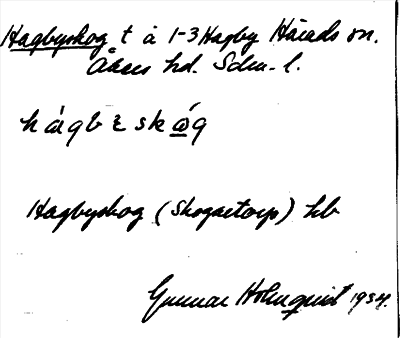 Hagbyskog t å 1-3 Hagby Härads sn.
Åkers hd. Sdm. l.
hágbɛskǿg
Hagbyskog (Skogstorp) hb
Gunnar Holmquist 1934.